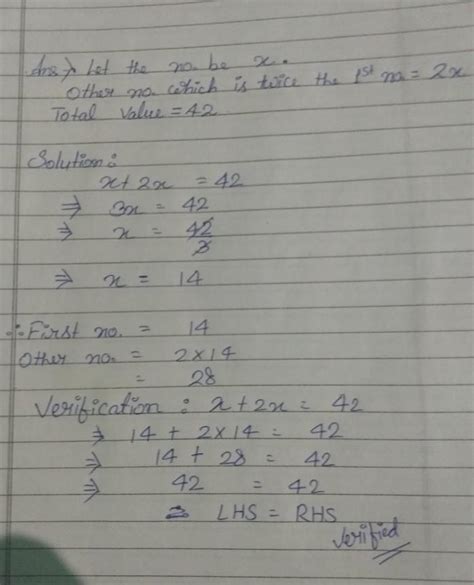 Ans → Let the no. be x.
Other no. which is twice the 1st no = 2x
Total Value = 42
Solution:
x + 2x = 42
⇒ 3x = 42
⇒ x = 42/3
⇒ x = 14
∴ First no. = 14
Other no. = 2×14
= 28
Verification : x + 2x = 42
⇒ 14 + 2×14 = 42
⇒ 14 + 28 = 42
⇒ 42 = 42
LHS = RHS
Verified